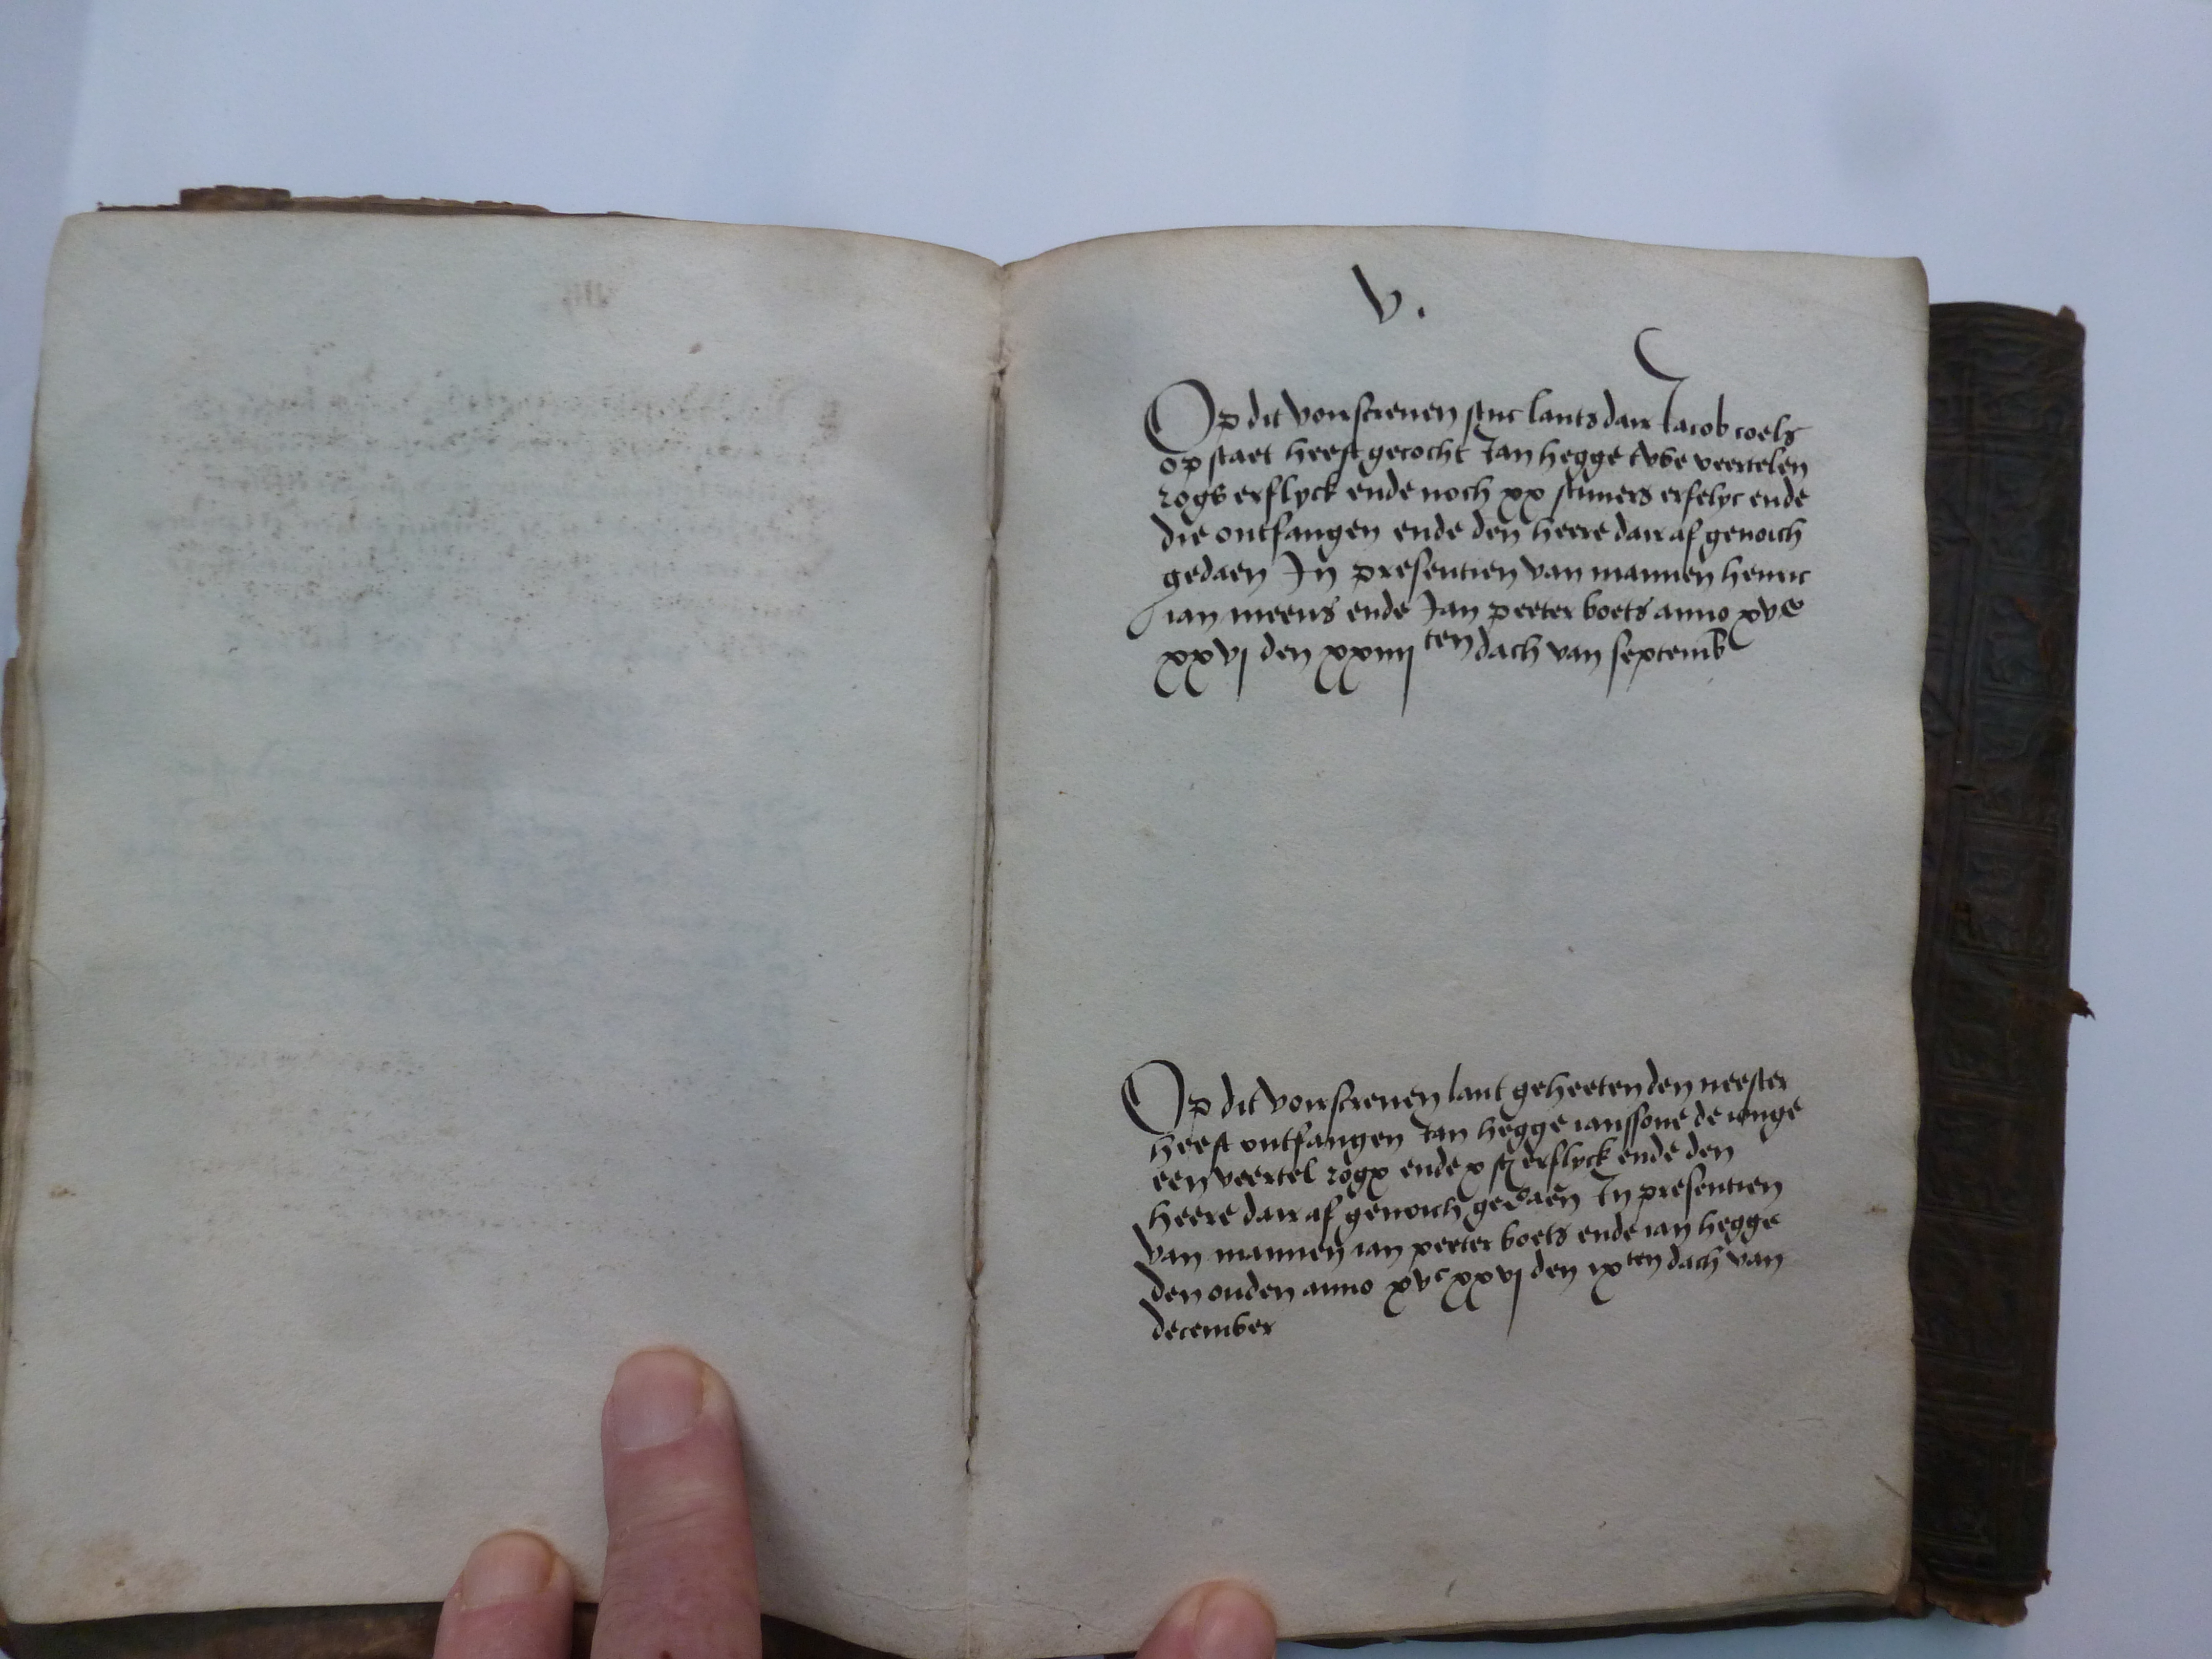 V.
Op dit voirscreven stuc lants dair Jacob roels
op staet heeft gecocht Jan hegge twe veertelen
rogs erflyck ende noch xx stuvers erfelyc ende
die ontfangen ende den heere dair af genoich
gedaen In presentien van mannen henric
ian meeus ende Jan peeter boets anno xvc
xxvj den xxiiij ten dach van septemb
Op dit voirscreven lant geheeten den neester
heeft ontfangen Jan hegge ianssone de ionge
een veertel rogx ende x st erflyck ende den
heere dair af genoich gedaen In presentien
van mannen ian peeter boets ende ian hegge
den ouden anno xvc xxvj den ix ten dach van
december